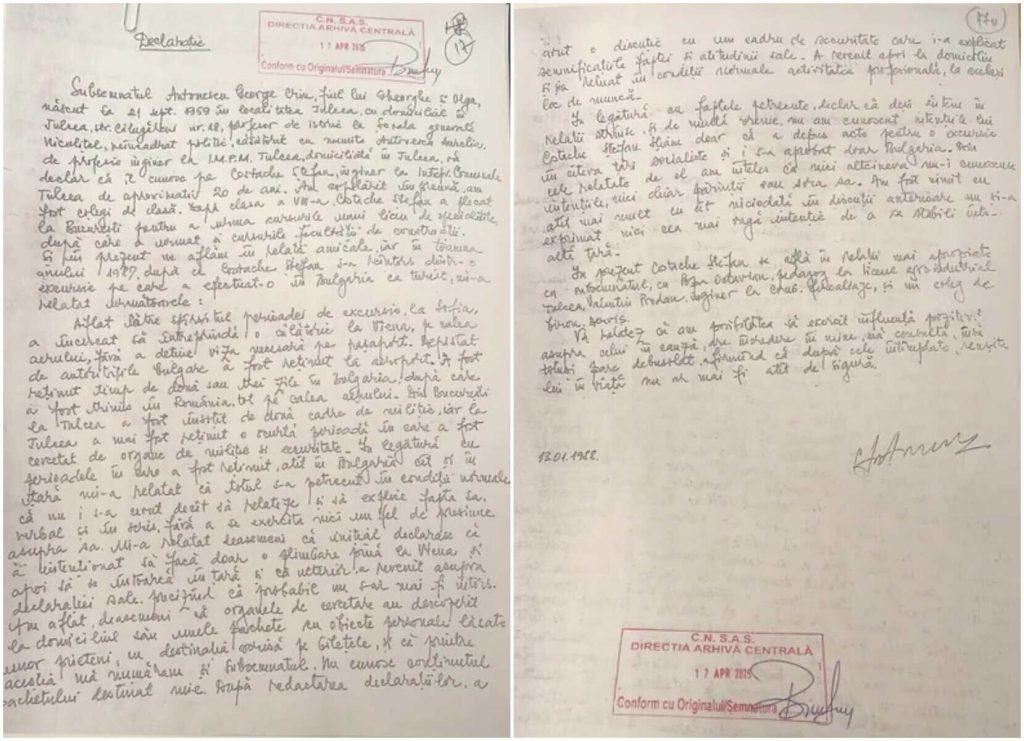 C.N.S.A.S.
DIRECȚIA ARHIVĂ CENTRALĂ
17 APR 2025
Conform cu Originalul/Semnatura
17
Declarație
Subsemnatul Antonescu George Crin, fiul lui Gheorghe și Olga,
născut la 21 sept. 1959 în localitatea Tulcea, cu domiciliul în
Tulcea, str. Călugăreni nr. 18, profesor de istorie la Școala generală
Niculițel, neîncadrat politic, căsătorit cu numita Antonescu Aurelia,
de profesie inginer la I.M.P.M. Tulcea, domiciliată în Tulcea, vă
declar că îl cunosc pe Costache Ștefan, inginer la Intepr. Comunale
Tulcea de aproximativ 20 de ani. Am copilărit împreună, am
fost colegi de clasă. După clasa a VIII-a, Costache Ștefan a plecat
la București pentru a urma cursurile unui liceu de specialitate,
după care a urmat și cursurile facultății de construcții.
Și pîn prezent ne aflăm în relații amicale, iar în toamna
anului 1987, după ce Costache Ștefan s-a reîntors dintr-o
excursie pe care a efectuat-o în Bulgaria ca turist, mi-a
relatat următoarele:
Aflat către sfîrșitul perioadei de excursie, la Sofia,
a încercat să întreprindă o călătorie la Viena, pe calea
aerului, fără a deține viza necesară pe pașaport. Depistat
de autoritățile bulgare a fost reținut la aeroport. A fost
reținut timp de două sau trei zile în Bulgaria, după care
a fost trimis în România, tot pe calea aerului. Din București
la Tulcea a fost însoțit de două cadre de miliție, iar la
Tulcea a mai fost reținut o scurtă perioadă în care a fost
cercetat de organe de miliție și securitate. În legătură cu
perioadele în care a fost reținut, atît în Bulgaria cît și în
țară mi-a relatat că totul s-a petrecut în condiții normale
că nu i s-a cerut decît să relateze și să explice fapta sa,
verbal și în scris, fără a se exercita nici un fel de presiune
asupra sa. Mi-a relatat deasemeni că inițial declarase că
a intenționat să facă doar o plimbare pînă la Viena și
apoi să se întoarcă în țară și că ulterior a revenit asupra
declarației sale, precizînd că probabil nu s-ar mai fi întors.
Am aflat, deasemeni că organele de cercetare au descoperit
la domiciliul său unele pachete cu obiecte personale lăsate
unor prieteni, cu destinația scrisă pe biletele, și că printre
aceștia mă număram și subsemnatul. Nu cunosc conținutul
pachetului destinat mie. După redactarea declarațiilor, a
17v
avut o discuție cu un cadru de securitate care i-a explicat
semnificațiile faptei și atitudinii sale. A revenit apoi la domiciliu
și și-a reluat în condiții normale activitatea profesională, la același
loc de muncă.
În legătură cu faptele petrecute, declar că deși sîntem în
relații strînse, și de multă vreme, nu am cunoscut intențiile lui
Costache Ștefan. Știam doar că a depus acte pentru o excursie
în cîteva țări socialiste și i s-a aprobat doar Bulgaria. Din
cele relatate de el am înțeles că nici altcineva nu-i cunoscuse
intențiile, nici chiar părinții sau sora sa. Am fost uimit cu
atît mai mult cu cît niciodată în discuții anterioare nu și-a
exprimat nici cea mai vagă intenție de a se stabili într-o
altă țară.
În prezent Costache Ștefan se află în relații mai apropiate
cu subsemnatul, cu Popa Octavian, pedagog la liceul agroindustrial
Tulcea, Valentin Prodan, inginer la și un coleg de
birou,
Vă relatez că am posibilitatea să exercit influență pozitivă
asupra celui în cauză, are încredere în mine, mă consultă, însă
totuși pare debusolat, afirmînd că după cele întîmplate, reușita
lui în viață nu ar mai fi atît de sigură.
13.01.1988.
C.N.S.A.S.
DIRECȚIA ARHIVĂ CENTRALĂ
17 APR 2025
Conform cu Originalul/Semnatura